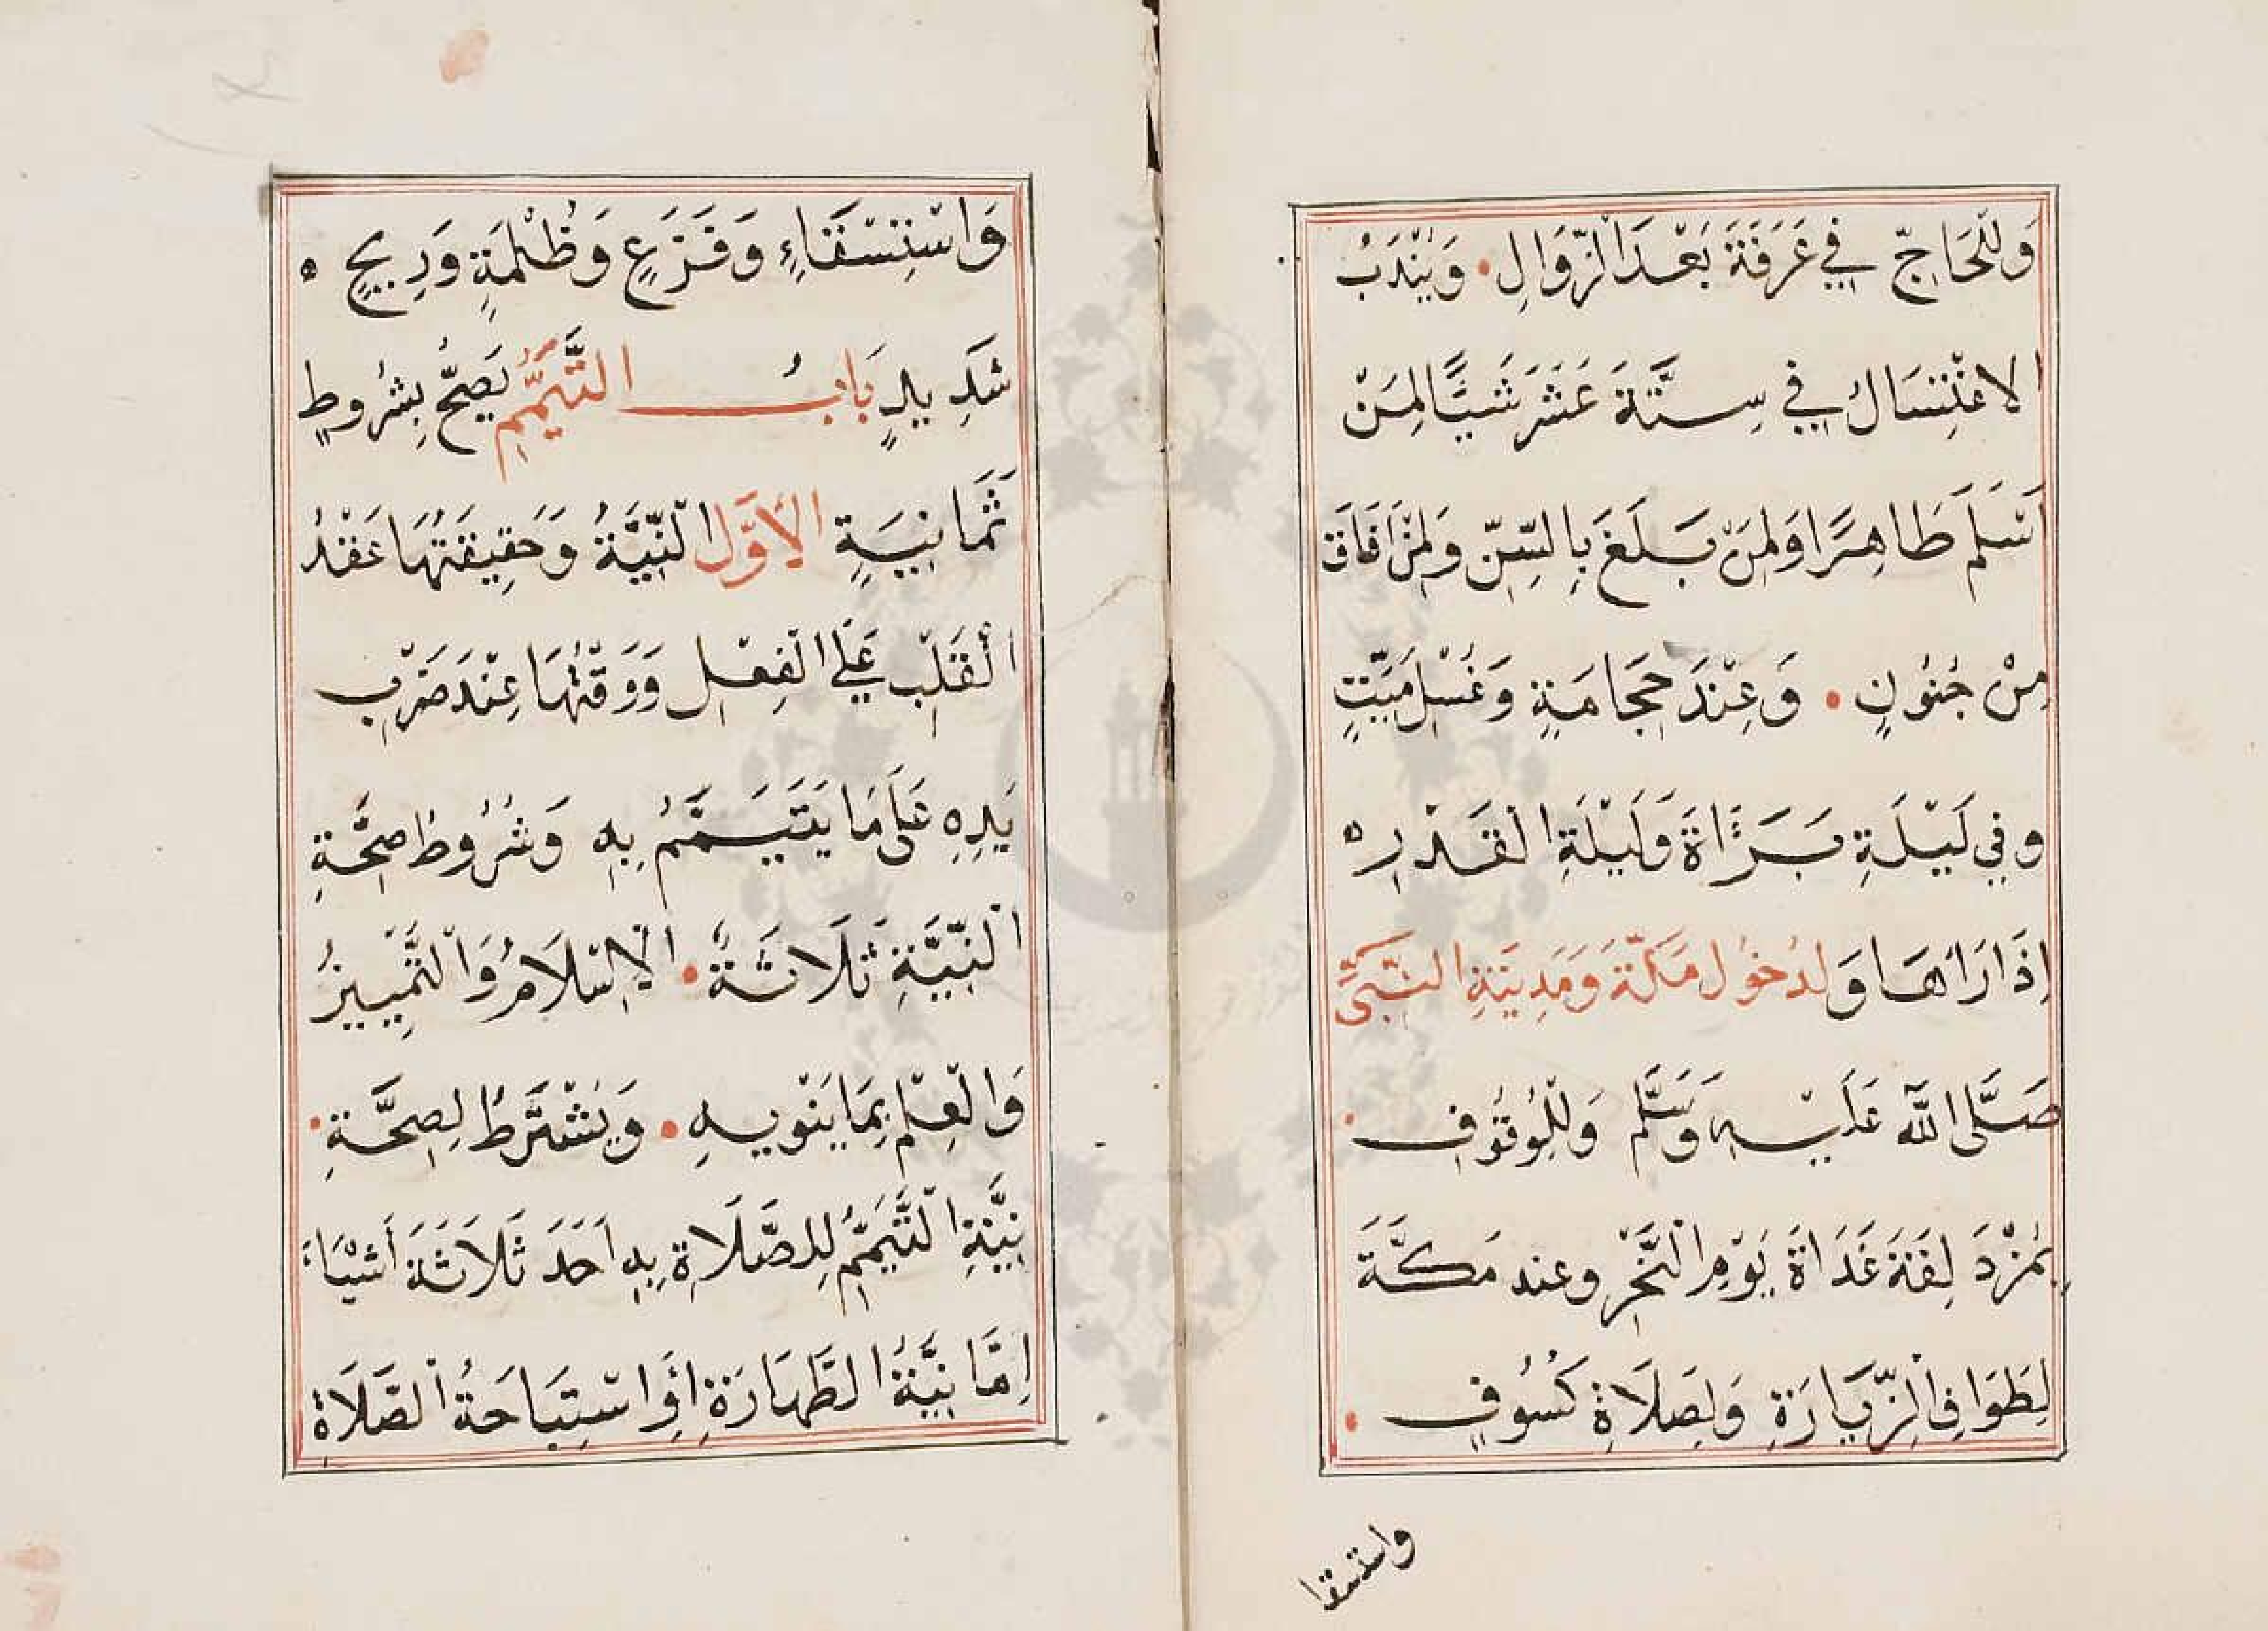 وَلِلْحَاجِّ فِي عَرَفَةَ بَعْدَ الزَّوَالِ • وَيُنْدَبُ
الاغْتِسَالُ فِي سِتَّةَ عَشَرَ شَيْئًا لِمَنْ
اَسْلَمَ طَاهِرًا وَلِمَنْ بَلَغَ بِالسِّنِّ وَلِمَنْ اَفَاقَ
مِنْ جُنُونٍ • وَعِنْدَ حِجَامَةٍ وَغُسْلِ مَيِّتٍ
وفِي لَيْلَةِ بَرَاءَةَ وَلَيْلَةِ الْقَدْرِ ه
اِذَا رَاَهَا وَلِدُخُولِ مَكَّةَ وَمَدِينَةِ النَّبِيِّ
صَلَّى اللّٰهُ عَلَيْهِ وَسَلَّم وَلِلْوُقُوفِ •
بِمُزْدَلِفَةَ غَدَاةَ يَوْمِ النَّحْرِ وعند مَكَّةَ
لِطَوَافِ الزِّيَارَةِ وَلِصَلَاةِ كُسُوفٍ •
واستسقا
وَاسْتِسْقَاءٍ وَفَزَعٍ وَظُلْمَةٍ وَرِيحٍ ه
شَدِيدٍ بَابُ التَّيَمُّمِ يَصِحُّ بِشُرُوطٍ
ثَمَانِيَةٍ الأَوَّلُ النِّيَّةُ وَحَقِيقَتُهَا عَقْدُ
الْقَلْبِ عَلَى الْفِعْلِ وَوَقْتُهَا عِنْدَ ضَرْبِ
يَدِهِ عَلَى مَا يَتَيَمَّمُ بِهِ وَشُرُوطُ صِحَّةِ
النِّيَّةِ ثَلَاثَةٌ • الْاِسْلَامُ وَالتَّمْيِيزُ
وَالْعِلْمُ بِمَا يَنْوِيهِ • وَيُشْتَرَطُ لِصِحَّةِ •
نِيَّةِ التَّيَمُّمِ لِلصَّلَاةِ بِهِ اَحَدَ ثَلَاثَةَ أَشْيَاءَ
اِمَّا نِيَّةُ الطَّهَارَةِ أَوِ اسْتِبَاحَةُ الصَّلَاةِ